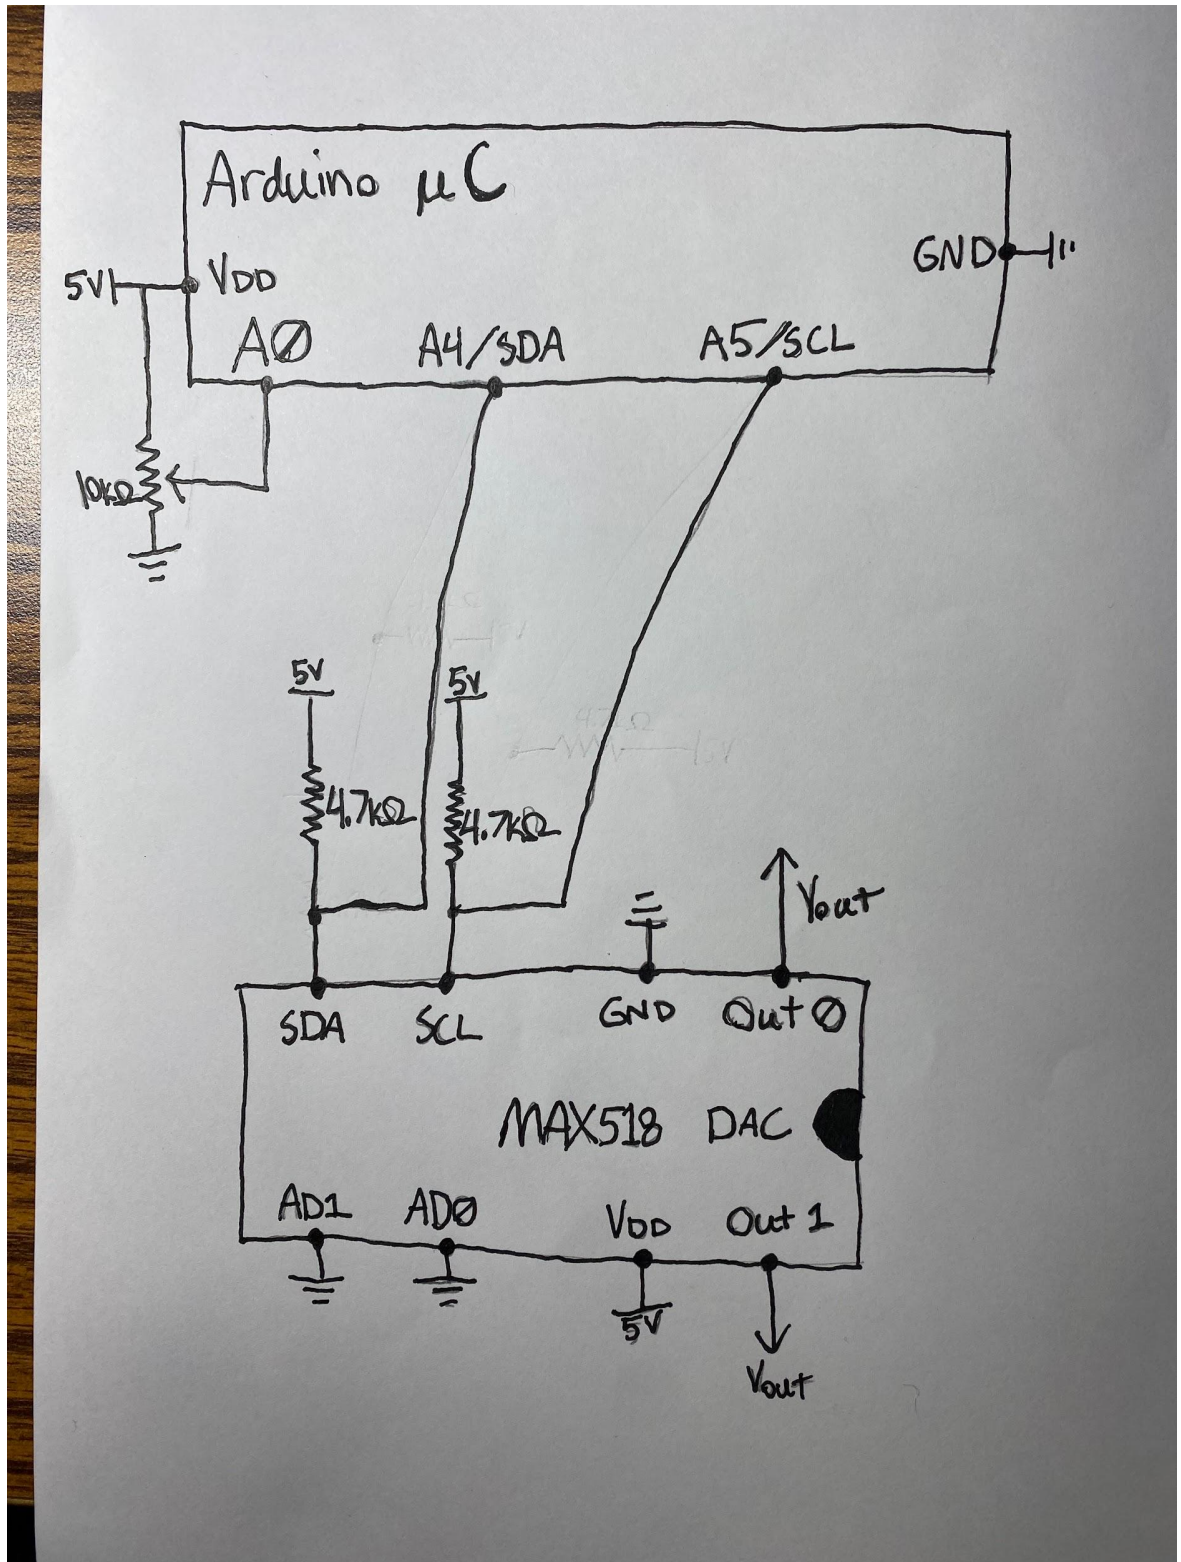 Arduino µC
GND
5V VDD
AØ A4/SDA A5/SCL
10kΩ
5V 5V
4.7kΩ 4.7kΩ
Vout
SDA SCL GND Out Ø
MAX518 DAC
AD1 ADØ VDD Out 1
5V
Vout